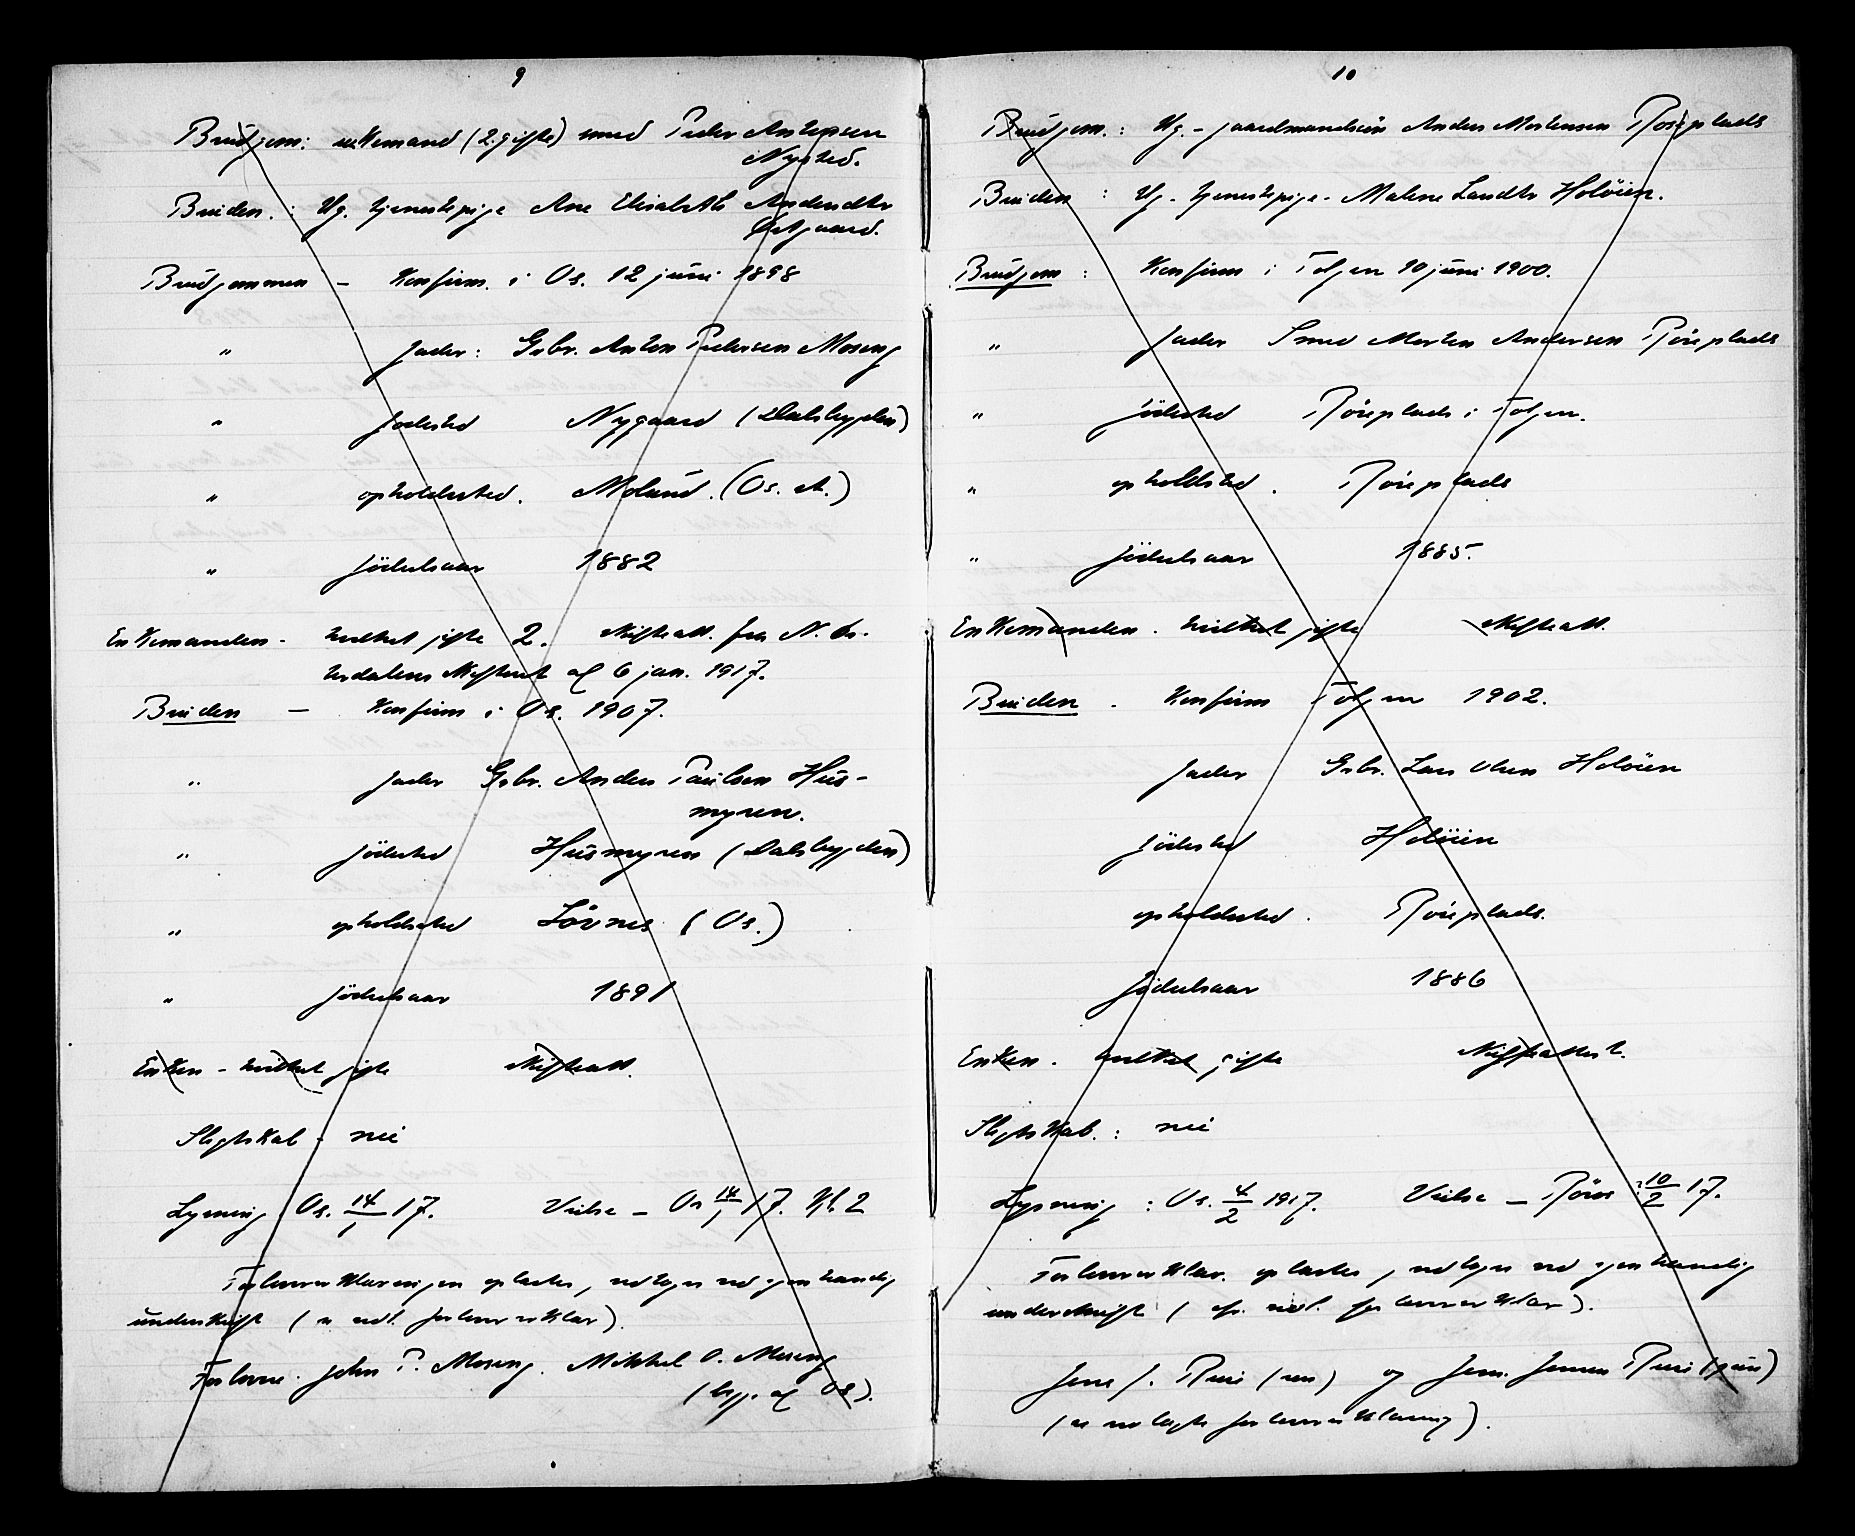 9
Brudgom: enkemand (2. gifte) smed Peder Antonsen
Nysted.
Bruden: Ug. tjenestepige Ane Elisabeth Andersdtr
Østgaard.
Brudgommen – Konfirm. i Os. 12 juni 1898
" fader: Grbr. Anton Pedersen Moseng
" fødested Nygaard (Dalsbygden)
" opholdssted. Moland. (Os. st.)
" fødselsaar 1882
Enkemanden - hvilket gifte 2. Skifteatt. fra N. Øs-
terdalens Skifteret af 6 jan. 1917.
Bruden – Konfirm i Os. 1907.
" fader Grbr. Anders Paulsen Hus-
myren.
" fødested Husmyren (Dalsbygden)
" opholdssted Løvnes (Os.)
" fødselsaar 1891
Enken - hvilket gifte Skifteatt.
Slegtskab - nei
Lysning Os. 14/1 17. Vielse – Os 14/1 17. Kl. 2
Forlovererklæringen oplæstes, vedtoges ved egenhændig
underskrift (se vedl. forlovererklær).
Forlovere. John P. Moseng. Mikkel O. Moseng
(begge af Os).
10
Brudgom. : Ug. - gaardmandssøn Anders Mortensen Røseplads
Bruden : Ug. tjenestepige - Malene Larsdtr Holøien.
Brudgom : Konfirm i Tolgen 10 juni 1900.
" fader Smed Morten Andersen Røseplads
" fødested Røseplads i Tolgen.
" opholdsted. Røseplads
" fødselsaar 1885.
Enkemanden. hvilket gifte Skifteatt.
Bruden - Konfirm Tolgen 1902.
fader Grbr. Lars Olsen Holøien
fødested Holøien
opholdssted. Røseplads.
fødselsaar 1886
Enken. hvilket gifte Skifteattest.
Slegtskab. : nei
Lysning : Os. 4/2 1917. Vielse – Røros : 10/2 17.
Forlovererklær. oplæstes, vedtoges ved egenhændig
underskrift (cfr. vedl. forlovererklær).
Jens J. (sen) og Jens. Jensen (jun)
(se vedlagte forlovererklæring).